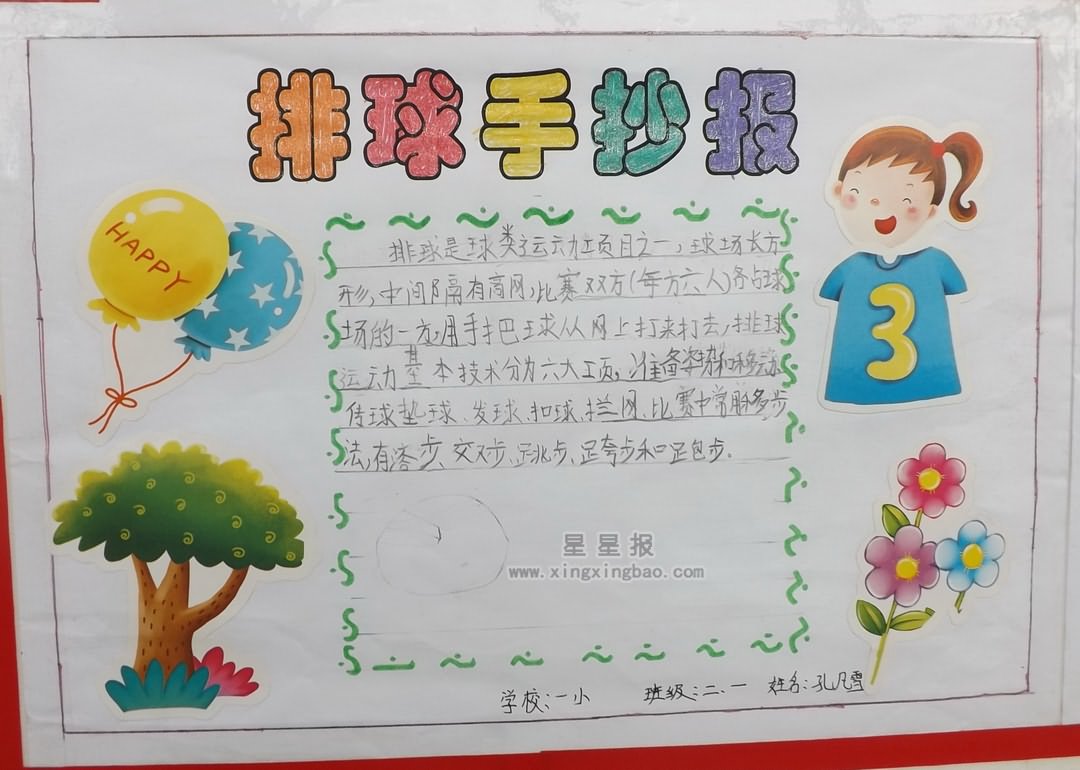 排球手抄报
HAPPY
排球是球类运动项目之一,球场长方
形,中间隔有高网,比赛双方(每方六人)各占球
场的一方,用手把球从网上打来打去,排球
运动基本技术分为六大工页,准备姿势和移动
传球垫球、发球、扣球、拦网,比赛中常用移步
法,有滑步、交叉步、跳步、跨步和跑步.
3
星星报
www.xingxingbao.com
学校:一小 班级:二、一 姓名:孔凡雪